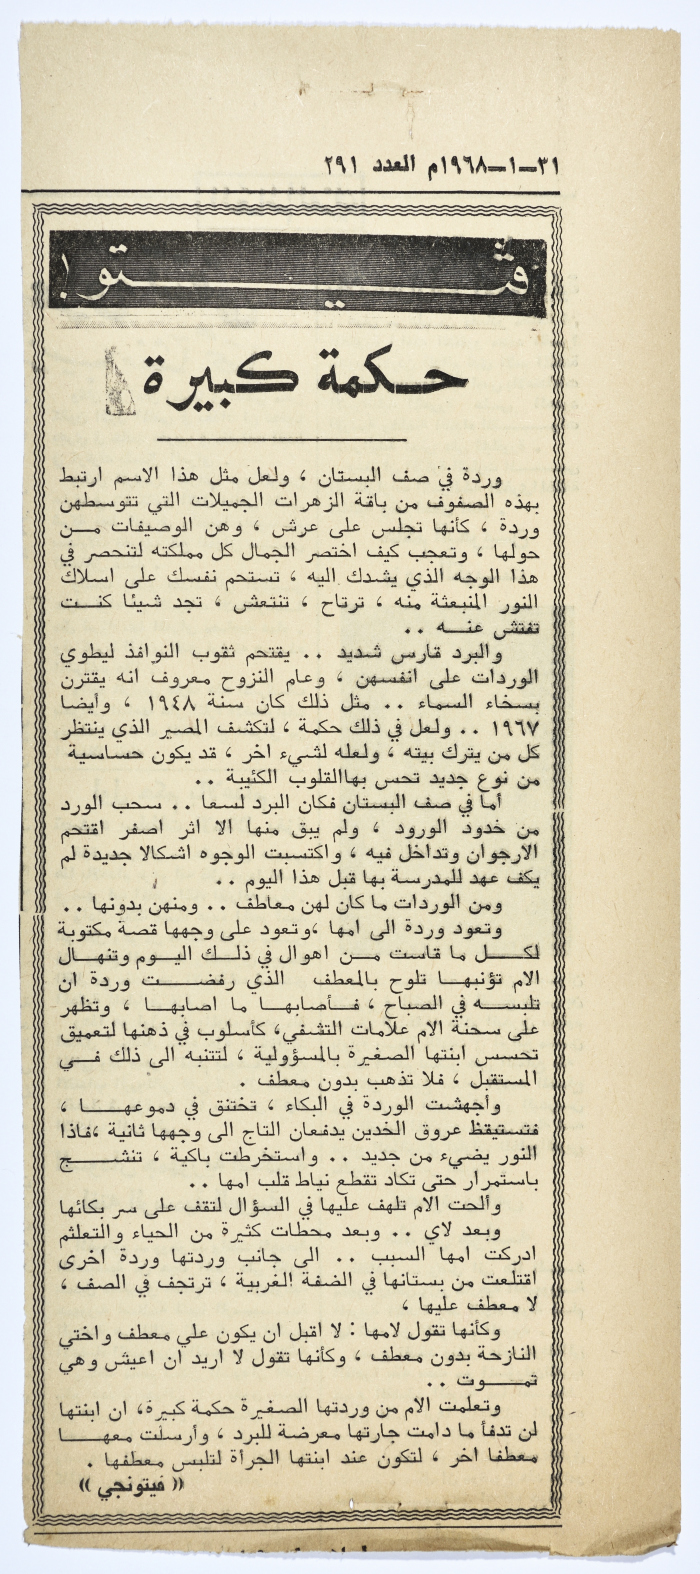 ٣١ــ١ــ١٩٦٨م العدد ٢٩١
ڤيتو !
حكمة كبيرة
وردة في صف البستان ، ولعل مثل هذا الاسم ارتبط
بهذه الصفوف من باقة الزهرات الجميلات التي تتوسطهن
وردة ، كأنها تجلس على عرش ، وهن الوصيفات من
حولها ، وتعجب كيف اختصر الجمال كل مملكته لتنحصر في
هذا الوجه الذي يشدك اليه ، تستحم نفسك على اسلاك
النور المنبعثة منه ، ترتاح ، تنتعش ، تجد شيئا كنت
تفتش عنه ..
والبرد قارس شديد .. يقتحم ثقوب النوافذ ليطوي
الوردات على انفسهن ، وعام النزوح معروف انه يقترن
بسخاء السماء .. مثل ذلك كان سنة ١٩٤٨ ، وأيضا
١٩٦٧ .. ولعل في ذلك حكمة ، لتكشف المصير الذي ينتظر
كل من يترك بيته ، ولعله لشيء اخر ، قد يكون حساسية
من نوع جديد تحس بهاالقلوب الكئيبة ..
أما في صف البستان فكان البرد لسعا .. سحب الورد
من خدود الورود ، ولم يبق منها الا اثر اصفر اقتحم
الارجوان وتداخل فيه ، واكتسبت الوجوه اشكالا جديدة لم
يكف عهد للمدرسة بها قبل هذا اليوم ..
ومن الوردات ما كان لهن معاطف .. ومنهن بدونها ..
وتعود وردة الى امها ،وتعود على وجهها قصة مكتوبة
لكل ما قاست من اهوال في ذلك اليوم وتنهال
الام تؤنبها تلوح بالمعطف الذي رفضت وردة ان
تلبسه في الصباح ، فأصابها ما اصابها ، وتظهر
على سحنة الام علامات التشفي، كأسلوب في ذهنها لتعميق
تحسس ابنتها الصغيرة بالمسؤولية ، لتتنبه الى ذلك في
المستقبل ، فلا تذهب بدون معطف .
وأجهشت الوردة في البكاء ، تختنق في دموعها ،
فتستيقظ عروق الخدين يدفعان التاج الى وجهها ثانية ،فاذا
النور يضيء من جديد .. واستخرطت باكية ، تنشج
باستمرار حتى تكاد تقطع نياط قلب امها ..
وألحت الام تلهف عليها في السؤال لتقف على سر بكائها
وبعد لاي .. وبعد محطات كثيرة من الحياء والتعلثم
ادركت امها السبب .. الى جانب وردتها وردة اخرى
اقتلعت من بستانها في الضفة الغربية ، ترتجف في الصف ،
لا معطف عليها ،
وكأنها تقول لامها : لا اقبل ان يكون علي معطف واختي
النازحة بدون معطف ، وكأنها تقول لا اريد ان اعيش وهي
تموت ..
وتعلمت الام من وردتها الصغيرة حكمة كبيرة، ان ابنتها
لن تدفأ ما دامت جارتها معرضة للبرد ، وأرسلت معها
معطفا اخر ، لتكون عند ابنتها الجرأة لتلبس معطفها .
(( فيتونجي ))